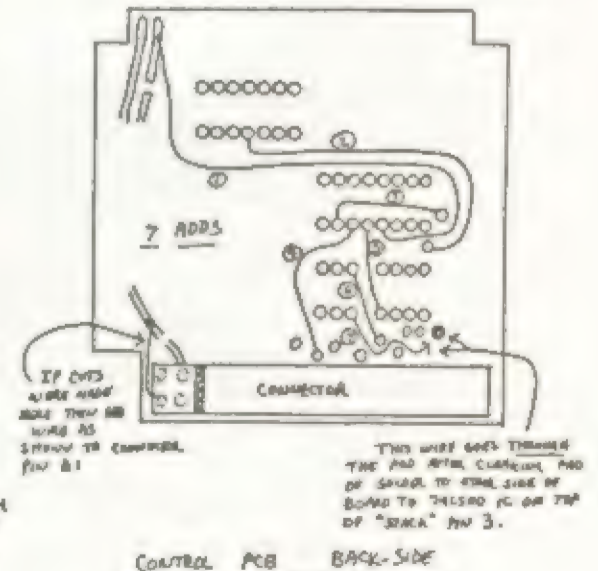 7 ADDS
CONNECTOR
IF CUTS
WERE MADE
HERE THEN
WIRE AS
SHOWN TO CONNECTOR
PIN
THIS WIRE GOES THROUGH
THE PAD AFTER CLEARING PAD
OF SOLDER TO OTHER SIDE OF
BOARD TO IC ON TOP
OF "STACK" PIN 3.
CONTROL PCB BACK-SIDE